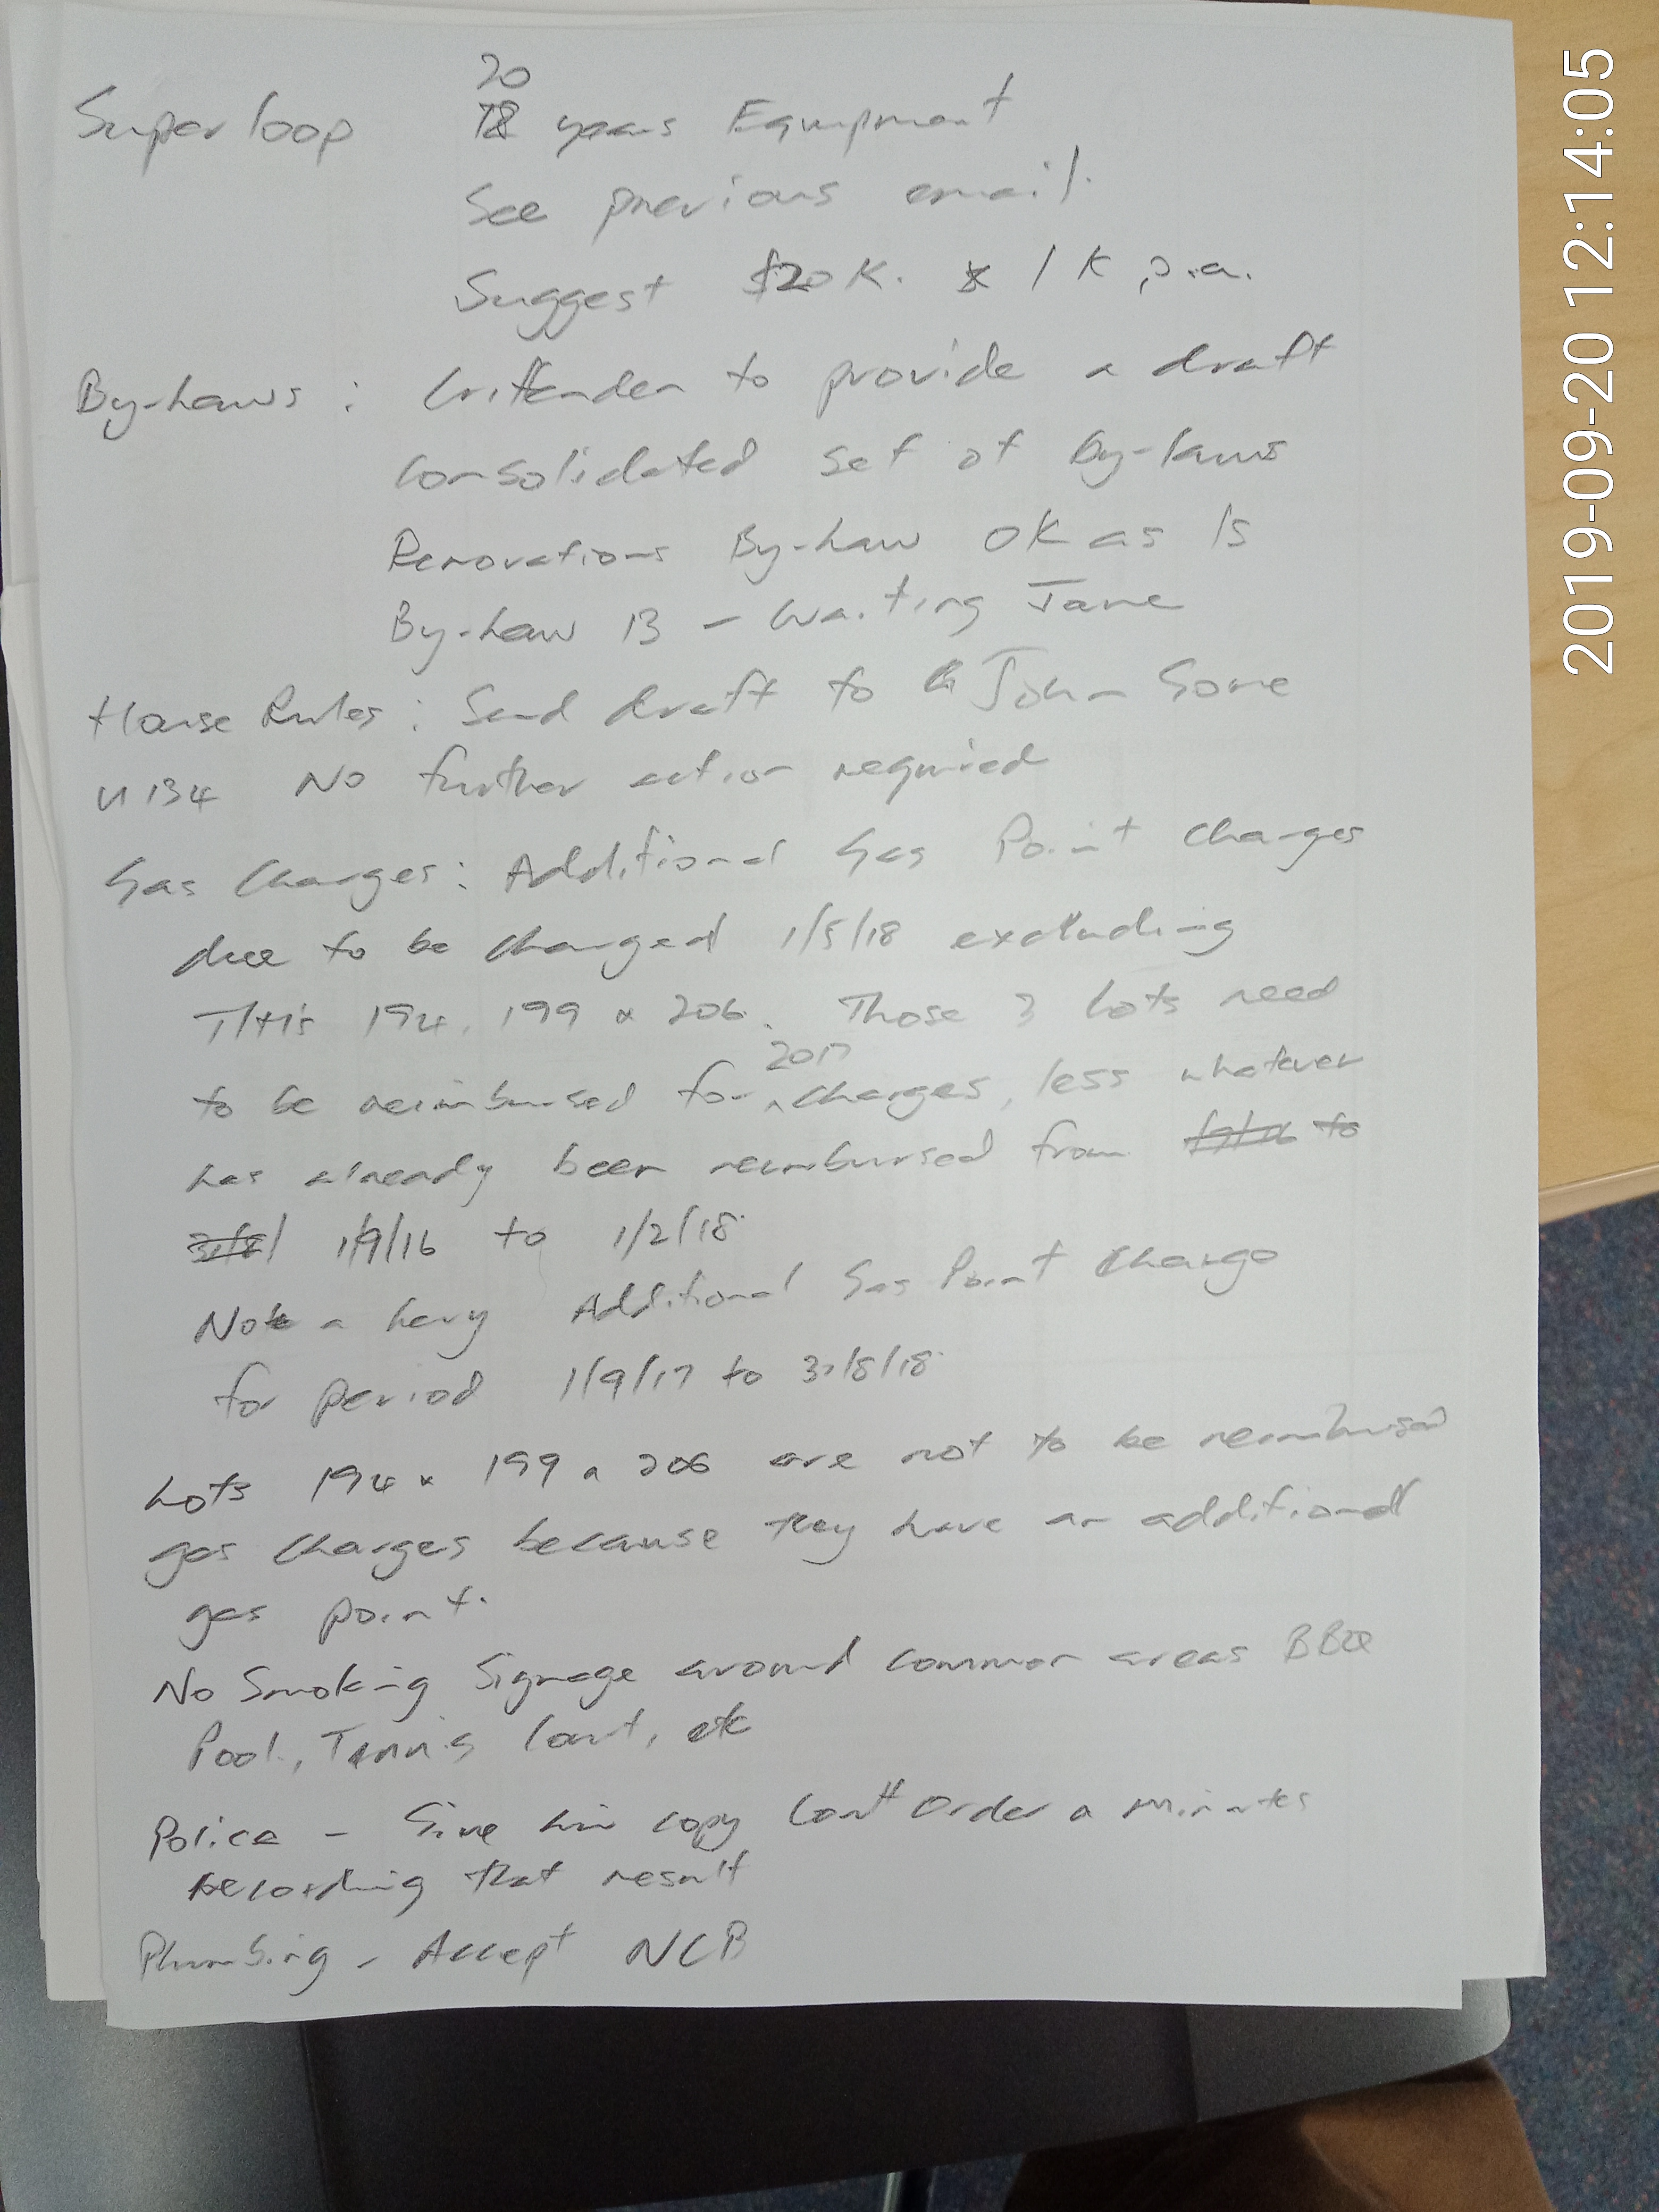 20
Superloop 18 years Equipment
See previous email.
Suggest $20K. & 1K p.a.
By-Laws : Crittenden to provide a draft
consolidated set of By-laws
Renovations By-Law OK as is
By-Law 13 - Waiting Jane
House Rules : Send draft to John Gore
U 134 No further action required
Gas Charges : Additional Gas Point Charges
due to be charged 1/5/18 excluding
194, 199 & 206. Those 3 Lots need
2017
to be reimbursed for charges, less whatever
has already been reimbursed from 1/9/16 to
31/8/ 1/9/16 to 1/2/18.
Note a levy Additional Gas Point Charge
for period 1/9/17 to 31/8/18.
Lots 194 & 199 & 206 are not to be reimbursed
gas charges because they have an additional
gas point.
No Smoking Signage around common areas BBQ
Pool, Tennis Court, etc
Police - Give him copy Court Order & Minutes
recording that result
Plumbing - Accept NCB
2019-09-20 12:14:05